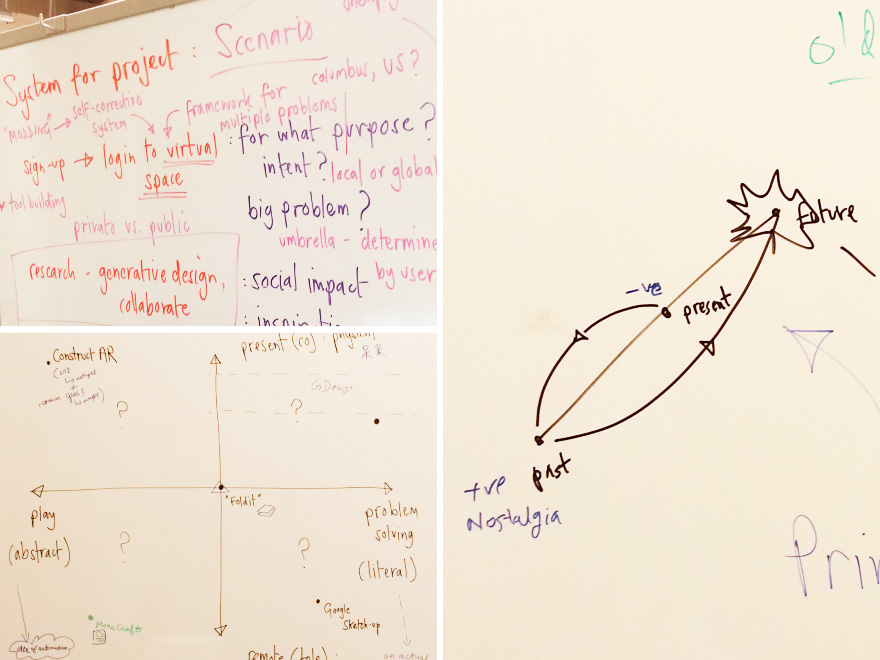 System for project : Scenario
columbus, US?
"modding" → self-corrective system
framework for multiple problems
sign-up → login to virtual space
: for what purpose?
intent?
local or global
tool building
big problem?
private vs. public
umbrella - determine by user
research - generative design,
collaborate
: social impact
Construct AR
present (co) : physical,
GDesign
?
?
"Foldit"
play
(abstract)
problem
solving
(literal)
?
?
Minecraft
Google
Sketch-up
remote (tele) :
an actual
old
future
-ve
present
past
+ve
Nostalgia
Prin